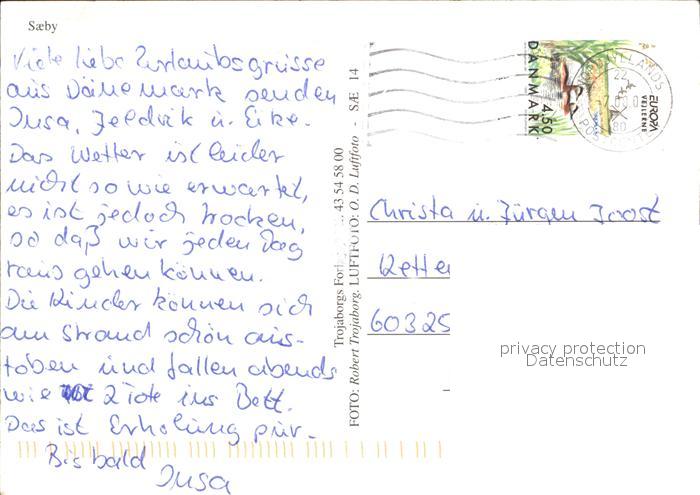 Sæby
Viele liebe Urlaubsgrüsse
aus Dänemark senden
Insa, Jeldrik u. Eike.
Das Wetter ist leider
nicht so wie erwartet,
es ist jedoch trocken,
so daß wir jeden Tag
raus gehen können.
Die Kinder können sich
am Strand schön aus-
toben und fallen abends
wie 2 Tote ins Bett.
Das ist Erholung pur.
Bis bald
Insa
Trojaborgs 43 54 58 00
FOTO: Robert Trojaborg. LUFTFOTO: O. D. Luftfoto - SÆ 14
DANMARK
4.50
EUROPA
VEJLERNE
22
Christa u. Jürgen Joost
60325
privacy protection
Datenschutz